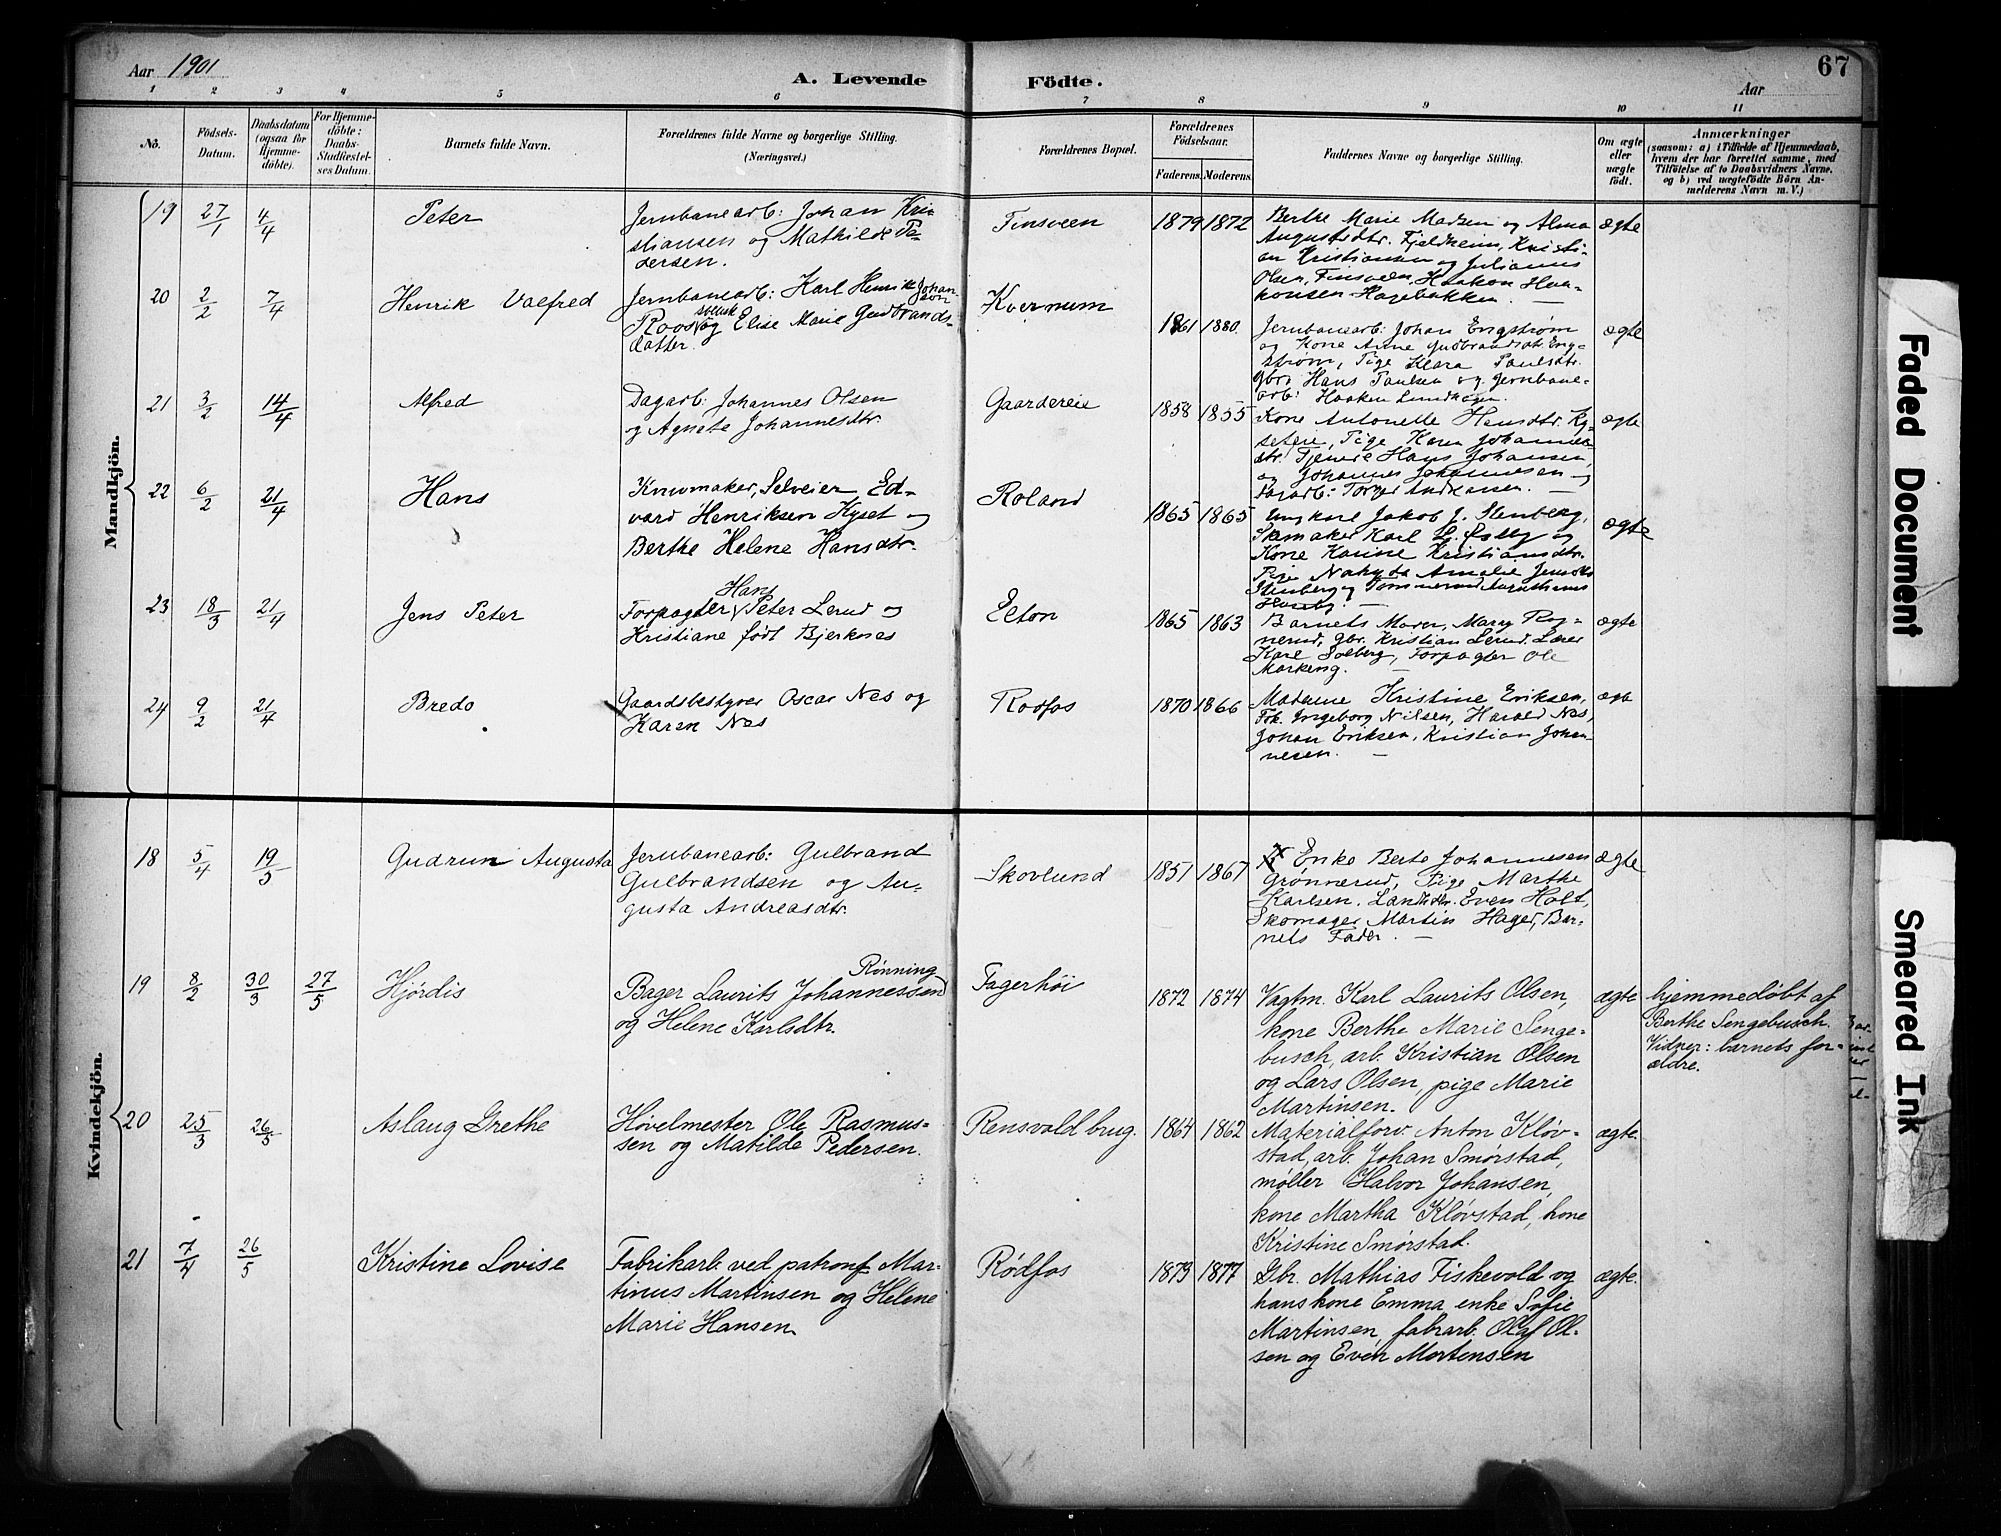 Aar 1901
A. Levende Födte.
67
Aar
1 2 3 4 5 6 7 8 9 10 11
No.
Födsels-Datum.
Daabsdatum (ogsaa for Hjemmedöbte).
For Hjemmedöbte: Daabs-Stadfæstelses Datum.
Barnets fulde Navn.
Forældrenes fulde Navne og borgerlige Stilling. (Næringsvei.)
Forældrenes Bopæl.
Forældrenes Födselsaar.
Faderens. Moderens.
Faddernes Navne og borgerlige Stilling.
Om ægte eller uægte födt.
Anmærkninger
(saasom: a) i Tilfælde af Hjemmedaab,
hvem der har forrettet samme, med
Tilföielse af to Daabsvidners Navne.
og b) ved uægtefödte Börn An-
melderens Navn m. V.)
Mandkjön.
19 27/1 4/4 Peter
Jernbanearb: Johan Kri-
stiansen og Mathilde Pe-
dersen.
Finsveen 1879 1872
Berthe Marie Madsen og Alma
Augustsdtr. Fjeldheim, Kristi-
an Kristiansen og Julianus
Olsen, Finsveen, Haakon Haa-
konsen Hagebakken. —
ægte
20 2/2 7/4 Henrik Valfred
Jernbanearb: Karl Henrik Johan-
son
Roos og Elise Marie Gudbrands-
datter.
Kvernum 1861 1880.
Jernbanearb: Johan Engstrøm
og Kone Anne Gudbrandsdt. Eng-
strøm, Pige Klara Paulsdtr.
Gbr. Hans Paulsen og Jernbane-
arb: Haaken Lundhagen.
ægte
21 3/2 14/4 Alfred
Dagarb: Johannes Olsen
og Agnete Johannesdtr.
Gaardereie 1858 1855
Kone Antonette Hansdtr. Ky-
seteie, Pige Karen Johannes-
dtr. Tjener Hans Johansen,
og Johannes Johannesen og
Dagarb: Torger Andersen. —
ægte
22 6/2 21/4 Hans
Knivmaker, Selveier Ed-
vard Henriksen Kyset og
Berthe Helene Hansdtr.
Roland 1865 1865
Ungkarl Jakob J. Stenberg,
Skomaker Karl L. Østby og
Kone Karine Kristiansdtr.
Pige Amalie
Stenberg og Tømmermd
ægte
23 18/3 21/4 Jens Peter
Hans
Forpagter Peter Lerud og
Kristiane født Bjerkenæs
Elton 1865 1863
Barnets Moder, Mary Rog-
nerud, gbr. Kristian Lerud, Lærer
Karl Solberg, Forpagter Ole
Markeng. —
ægte
24 9/2 21/4 Bredo
Gaardsbestyrer Oscar Næs og
Karen Næs
Rodfos 1870 1866
Madame Kristine Eriksen,
Frk. Ingeborg Nilsen, Harald Næs,
Johan Eriksen, Kristian Johan-
nesen. —
ægte
Kvindekjön.
18 5/4 19/5 Gudrun Augusta
Jernbanearb: Gulbrand
Gulbrandsen og Au-
gusta Andreasdtr.
Skovlund 1851 1867
Enke Berte Johannesen
Grønnerud, Pige Marthe
Karlsen. Landhdlr. Even Holt,
Skomager Martin Hager, Bar-
nets Fader. —
ægte
19 8/2 30/3 27/5 Hjørdis
Rønning
Bager Laurits Johannessen
og Helene Karlsdtr.
Fagerhøi 1872 1874
Vagtm. Karl Laurits Olsen,
kone Berthe Marie Senge-
busch, arb. Kristian Olsen
og Lars Olsen, pige Marie
Martinsen.
ægte.
hjemmedøbt af
Berthe Sengebusch.
Vidner: barnets for-
ældre.
20 25/3 26/5 Aslaug Grethe
Høvelmester Ole Rasmus-
sen og Matilde Pedersen.
Rensvold brug. 1864 1862
Materialforv. Anton Kløv-
stad, arb. Johan Smørstad,
møller Halvor Johansen,
kone Martha Kløvstad, kone
Kristine Smørstad.
ægte.
21 7/4 26/5 Kristine Lovise
Fabrikarb. ved patronf. Mar-
tinus Martinsen og Helene
Marie Hansen.
Rødfos 1879 1877
Gbr. Mathias Fiskevold og
hans kone Emma, enke Sofie
Martinsen, fabrarb. Olaf Ol-
sen og Even Mortensen
ægte.
Faded Document
Smeared Ink